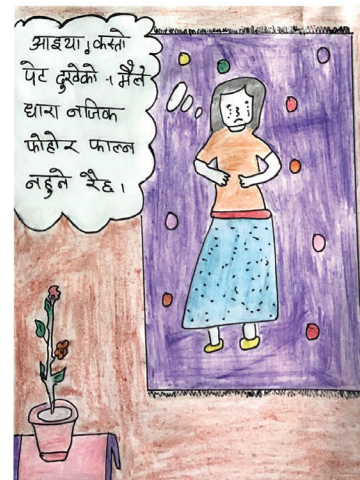 आइया! कस्तो
पेट दुखेको । मैले
धारा नजिक
फोहोर फाल्न
नहुने रैछ।